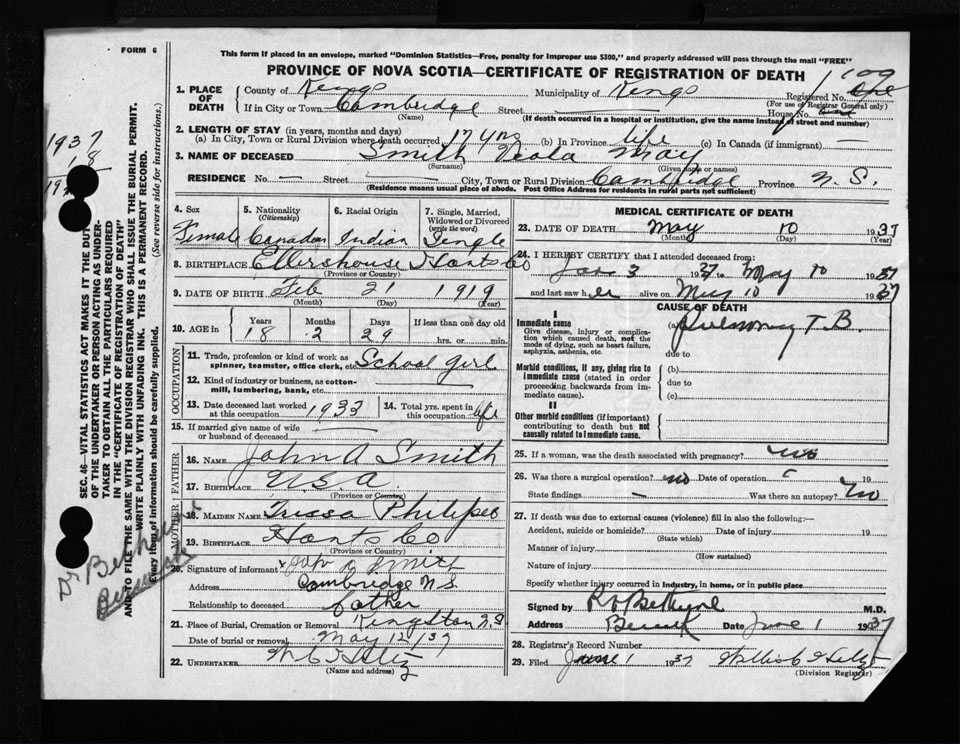 FORM 6
This form if placed in an envelope, marked "Dominion Statistics—Free, penalty for improper use $300," and properly addressed will pass through the mail "FREE"
PROVINCE OF NOVA SCOTIA—CERTIFICATE OF REGISTRATION OF DEATH
1. PLACE OF DEATH
County of Kings Municipality of Kings Registered No.
(For use of Registrar General only)
If in City or Town Cambridge Street House No.
(Name) (If death occurred in a hospital or institution, give the name instead of street and number)
2. LENGTH OF STAY (in years, months and days)
(a) In City, Town or Rural Division where death occurred 17 yrs (b) In Province life (c) In Canada (if immigrant) —
3. NAME OF DECEASED Smith Viola May
(Surname) (Given name or names)
RESIDENCE No. — Street — City, Town or Rural Division Cambridge Province N. S.
(Residence means usual place of abode. Post Office Address for residents in rural parts not sufficient)
4. Sex 5. Nationality (Citizenship) 6. Racial Origin 7. Single, Married, Widowed or Divorced (write the word)
Female Canadian Indian Single
8. BIRTHPLACE Ellershouse Hants Co
(Province or Country)
9. DATE OF BIRTH Feb 21 1919
(Month) (Day) (Year)
10. AGE in Years Months Days If less than one day old
18 2 29 hrs. or min.
OCCUPATION
11. Trade, profession or kind of work as spinner, teamster, office clerk, etc. School Girl
12. Kind of industry or business, as cotton-mill, lumbering, bank, etc.
13. Date deceased last worked at this occupation 1933
14. Total yrs. spent in this occupation life
15. If married give name of wife or husband of deceased —
FATHER
16. NAME John A Smith
17. BIRTHPLACE U.S.A
(Province or Country)
MOTHER
18. MAIDEN NAME
19. BIRTHPLACE Hants Co
(Province or Country)
20. Signature of informant x John A Smith
Address Cambridge N.S
Relationship to deceased Father
21. Place of Burial, Cremation or Removal Kingston N.S
Date of burial or removal May 12/37
22. UNDERTAKER
(Name and address)
MEDICAL CERTIFICATE OF DEATH
23. DATE OF DEATH May 10 1937
(Month) (Day) (Year)
24. I HEREBY CERTIFY that I attended deceased from:
Jan 3 1937 to May 10 1937
and last saw her alive on May 10 1937
CAUSE OF DEATH
I
Immediate cause
Give disease, injury or complication which caused death, not the mode of dying, such as heart failure, asphyxia, asthenia, etc.
(a) Pulmonary T.B.
due to
Morbid conditions, if any, giving rise to immediate cause (stated in order proceeding backwards from immediate cause).
(b)
due to
(c)
II
Other morbid conditions (if important) contributing to death but not causally related to immediate cause.
25. If a woman, was the death associated with pregnancy? no
26. Was there a surgical operation? no Date of operation 19
State findings — Was there an autopsy? No
27. If death was due to external causes (violence) fill in also the following:—
Accident, suicide or homicide? Date of injury 19
(State which)
Manner of injury
(How sustained)
Nature of injury
Specify whether injury occurred in industry, in home, or in public place
Signed by M.D.
Address Berwick Date June 1 1937
28. Registrar's Record Number
29. Filed June 1 1937
(Division Registrar)
SEC. 46—VITAL STATISTICS ACT MAKES IT THE DUTY
OF THE UNDERTAKER OR PERSON ACTING AS UNDER-
TAKER TO OBTAIN ALL THE PARTICULARS REQUIRED
IN THE "CERTIFICATE OF REGISTRATION OF DEATH"
AND TO FILE THE SAME WITH THE DIVISION REGISTRAR WHO SHALL ISSUE THE BURIAL PERMIT.
WRITE PLAINLY WITH UNFADING INK. THIS IS A PERMANENT RECORD.
Every item of information should be carefully supplied. (See reverse side for instructions.)
1937
18
Dr
Berwick